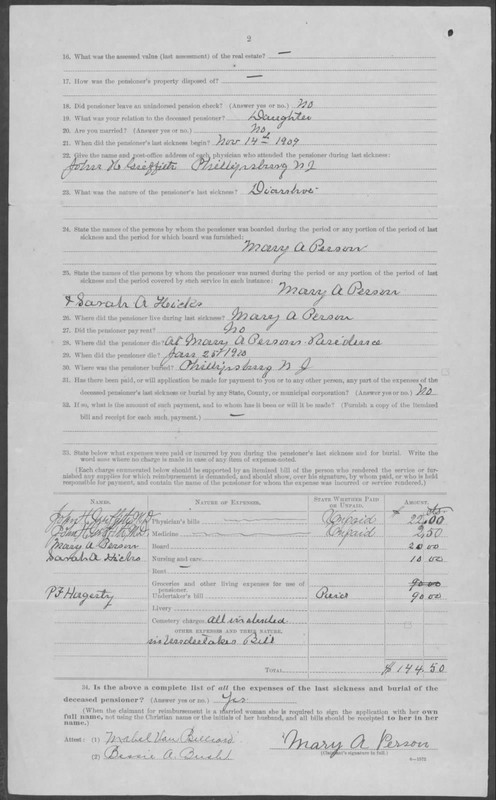 2
16. What was the assessed value (last assessment) of the real estate? —
17. How was the pensioner's property disposed of? —
18. Did pensioner leave an unindorsed pension check? (Answer yes or no.) No
19. What was your relation to the deceased pensioner? Daughter
20. Are you married? (Answer yes or no.) No
21. When did the pensioner's last sickness begin? Nov 14th 1909
22. Give the name and post-office address of each physician who attended the pensioner during last sickness:
John H Griffith Phillipsburg N J
23. What was the nature of the pensioner's last sickness?
24. State the names of the persons by whom the pensioner was boarded during the period or any portion of the period of last
sickness and the period for which board was furnished:
Mary A Person
25. State the names of the persons by whom the pensioner was nursed during the period or any portion of the period of last
sickness and the period covered by such service in each instance:
Mary A Person
& Sarah A Hicks
26. Where did the pensioner live during last sickness? Mary A Person
27. Did the pensioner pay rent? No
28. Where did the pensioner die? At Mary A Persons Residence
29. When did the pensioner die? Jan 25t 1910
30. Where was the pensioner buried? Phillipsburg N J
31. Has there been paid, or will application be made for payment to you or to any other person, any part of the expenses of the
deceased's last sickness or burial by any State, County, or municipal corporation? (Answer yes or no.) No
32. If so, what is the amount of such payment, and to whom has it been or will it be made? (Furnish a copy of the itemized
bill and receipt for each such payment.) —
33. State below what expenses were paid or incurred by you during the pensioner's last sickness and for burial. Write the
word none where no charge is made in case of any item of expense noted.
(Each charge enumerated below should be supported by an itemized bill of the person who rendered the service or fur-
nished any supplies for which reimbursement is demanded, and should show, over his signature, by whom paid, or who is held
responsible for payment, and contain the name of the pensioner for whom the expense was incurred or service rendered.)
NAMES. NATURE OF EXPENSES. STATE WHETHER PAID
OR UNPAID. AMOUNT.
John H Griffith M.D. Physician's bills Unpaid $ 22.00
John H Griffith M.D. Medicine Unpaid 2.50
Mary A Person Board 20 00
Sarah A Hicks Nursing and care 10 00
Rent —
Groceries and other living expenses for use of
pensioner. 90.00
P F Hagerty Undertaker's bill Paid 90 00
Livery
Cemetery charges All included
OTHER EXPENSES AND THEIR NATURE.
in Undertaker Bill
TOTAL $ 144.50
34. Is the above a complete list of all the expenses of the last sickness and burial of the
deceased pensioner? (Answer yes or no.) Yes
(When the claimant for reimbursement is a married woman she is required to sign the application with her own
full name, not using the Christian name or the initials of her husband, and all bills should be receipted to her in her
name.)
Attest: (1) Mabel Van
(2) Bessie A. Bush
Mary A. Person
(Claimant's signature in full.)